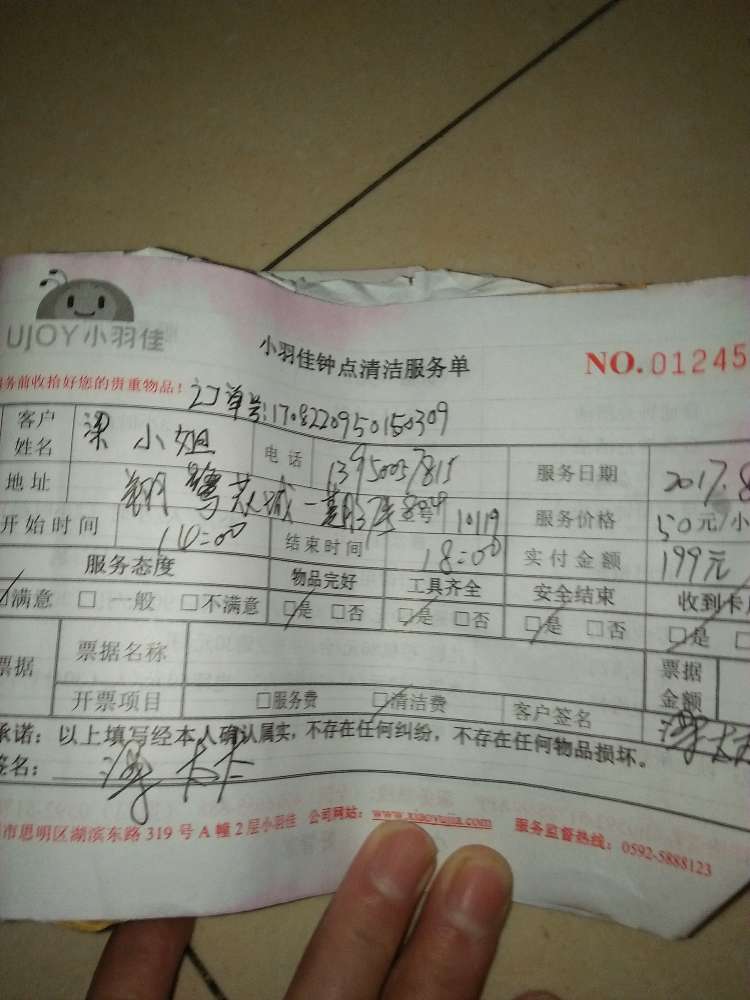 UJOY小羽佳
小羽佳钟点清洁服务单
NO.01245
务前收拾好您的贵重物品! 订单号:1708220950150309
客户姓名 梁小姐 电话 13950057815 服务日期 2017.8
地址 8029 号 10119 服务价格 50元/小
开始时间 14:00 结束时间 18:00 实付金额 199元
服务态度 物品完好 工具齐全 安全结束 收到卡
满意 □一般 □不满意 □是 □否 □是 □否 □是 □否 □是 □
票据 票据名称 票据金额
开票项目 □服务费 □清洁费 客户签名
承诺:以上填写经本人确认属实,不存在任何纠纷,不存在任何物品损坏。
签名:
市思明区湖滨东路319号A幢2层小羽佳 公司网站:www.xiaoyujia.com 服务监督热线:0592-5888123